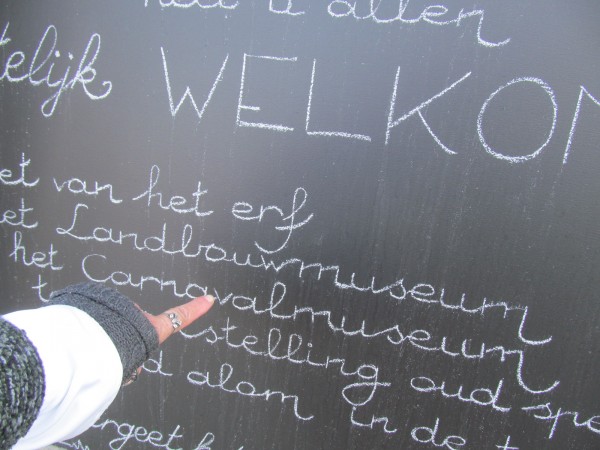 u allen
elijk WELKOM
et van het erf
et Landbouwmuseum
het Carnavalmuseum
stelling oud spe
d alom in de t
ergeet